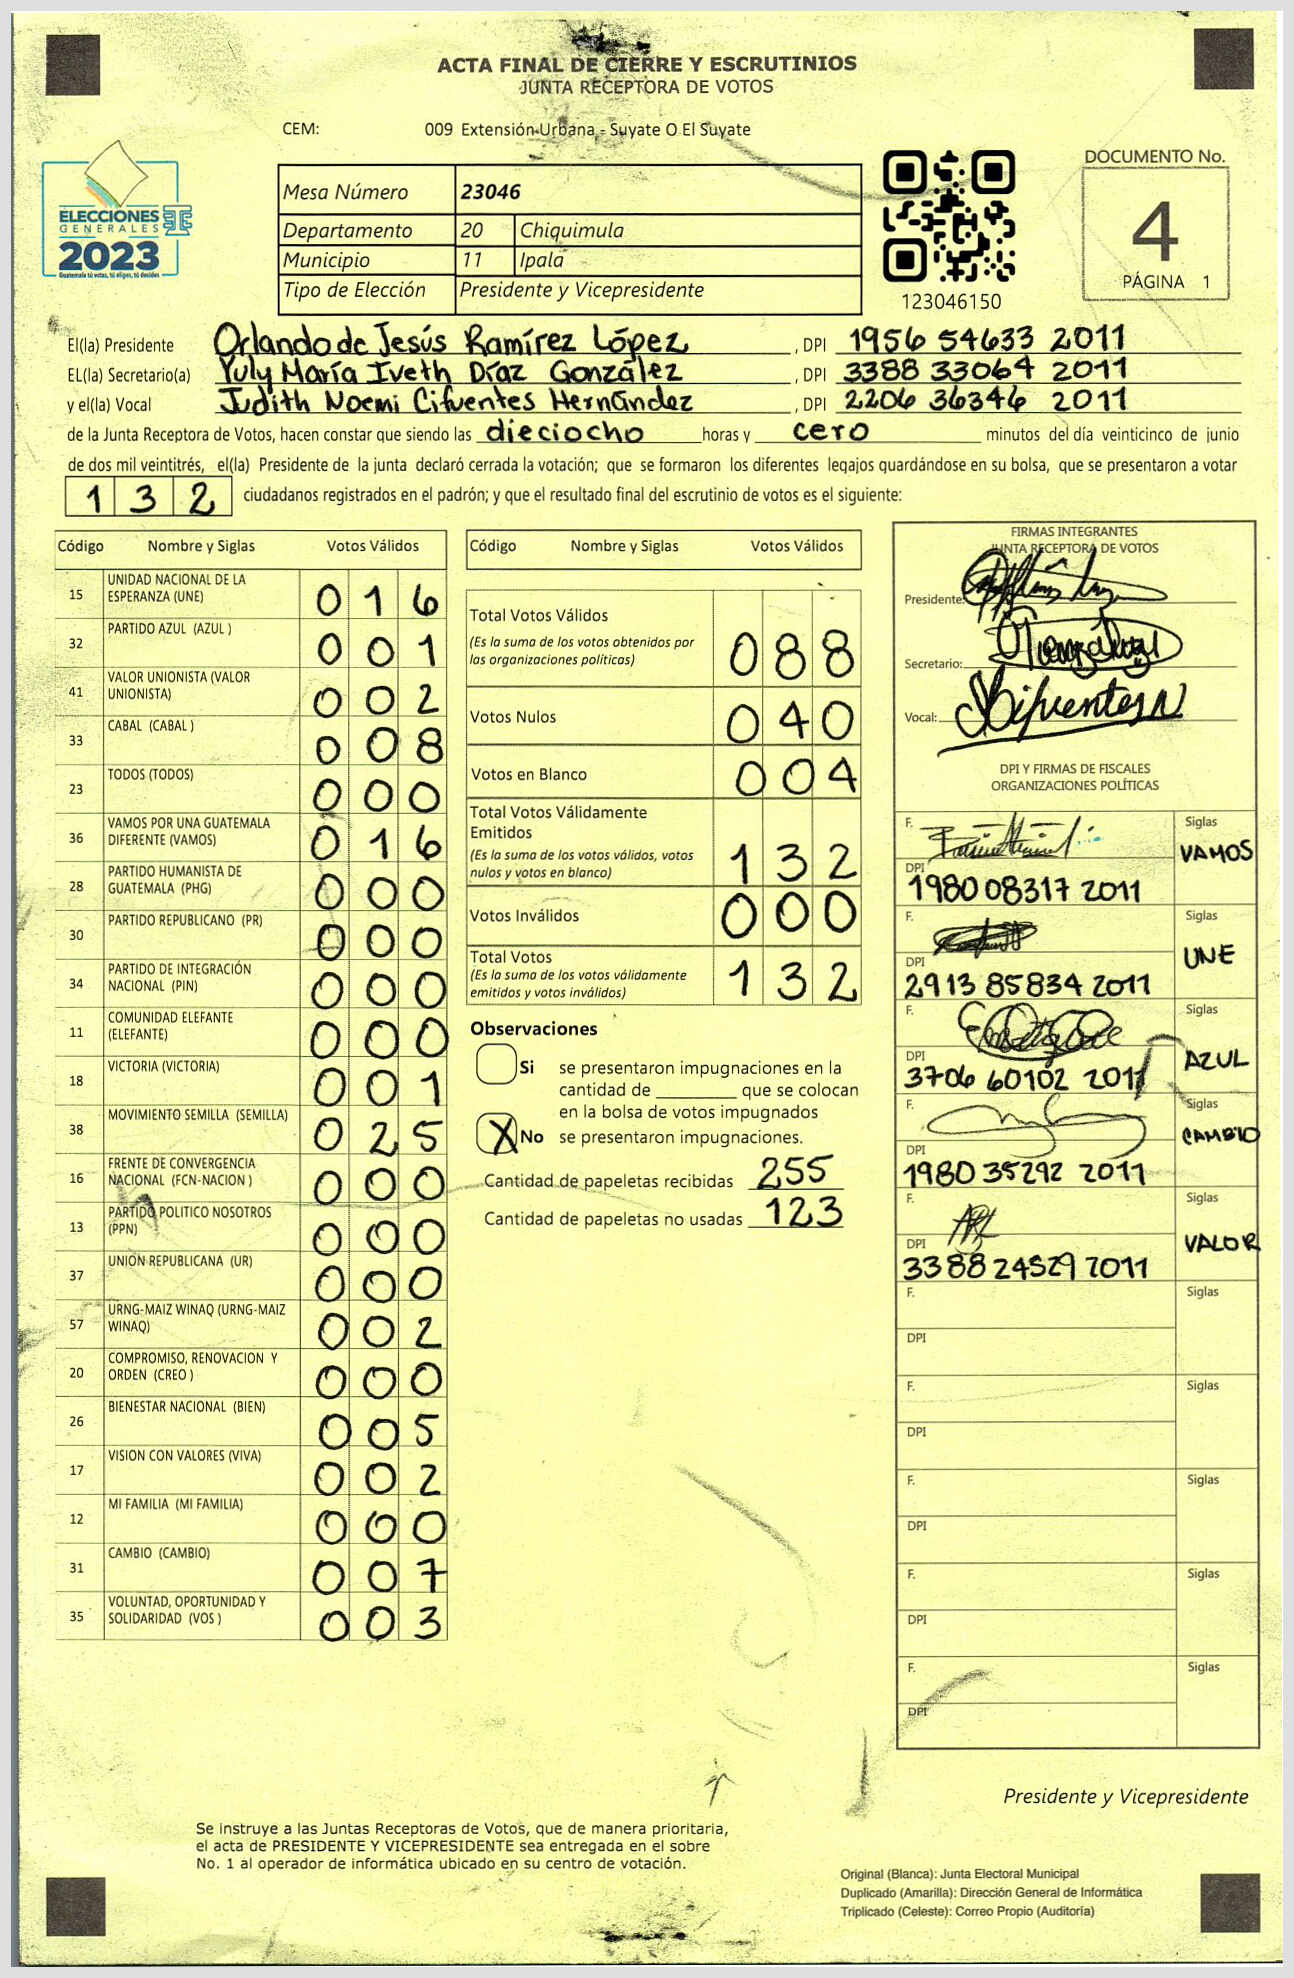 ACTA FINAL DE CIERRE Y ESCRUTINIOS
JUNTA RECEPTORA DE VOTOS
CEM: 009 Extensión Urbana - Suyate O El Suyate
ELECCIONES
GENERALES
2023
Guatemala tú votas, tú eliges, tú decides
Mesa Número 23046
Departamento 20 Chiquimula
Municipio 11 Ipala
Tipo de Elección Presidente y Vicepresidente
123046150
DOCUMENTO No.
4
PÁGINA 1
El(la) Presidente Orlando de Jesús Ramírez López, DPI 1956 54633 2011
EL(la) Secretario(a) Yuly María Iveth Díaz González, DPI 3388 33064 2011
y el(la) Vocal Judith Noemi Cifuentes Hernández, DPI 2206 36346 2011
de la Junta Receptora de Votos, hacen constar que siendo las dieciocho horas y cero minutos del día veinticinco de junio
de dos mil veintitrés, el(la) Presidente de la junta declaró cerrada la votación; que se formaron los diferentes legajos quardándose en su bolsa, que se presentaron a votar
132 ciudadanos registrados en el padrón; y que el resultado final del escrutinio de votos es el siguiente:
Código Nombre y Siglas Votos Válidos
15 UNIDAD NACIONAL DE LA ESPERANZA (UNE) 016
32 PARTIDO AZUL (AZUL ) 001
41 VALOR UNIONISTA (VALOR UNIONISTA) 002
33 CABAL (CABAL ) 008
23 TODOS (TODOS) 000
36 VAMOS POR UNA GUATEMALA DIFERENTE (VAMOS) 016
28 PARTIDO HUMANISTA DE GUATEMALA (PHG) 000
30 PARTIDO REPUBLICANO (PR) 000
34 PARTIDO DE INTEGRACIÓN NACIONAL (PIN) 000
11 COMUNIDAD ELEFANTE (ELEFANTE) 000
18 VICTORIA (VICTORIA) 001
38 MOVIMIENTO SEMILLA (SEMILLA) 025
16 FRENTE DE CONVERGENCIA NACIONAL (FCN-NACION ) 000
13 PARTIDO POLITICO NOSOTROS (PPN) 000
37 UNION REPUBLICANA (UR) 000
57 URNG-MAIZ WINAQ (URNG-MAIZ WINAQ) 002
20 COMPROMISO, RENOVACION Y ORDEN (CREO ) 000
26 BIENESTAR NACIONAL (BIEN) 005
17 VISION CON VALORES (VIVA) 002
12 MI FAMILIA (MI FAMILIA) 000
31 CAMBIO (CAMBIO) 007
35 VOLUNTAD, OPORTUNIDAD Y SOLIDARIDAD (VOS ) 003
Código Nombre y Siglas Votos Válidos
Total Votos Válidos
(Es la suma de los votos obtenidos por
las organizaciones políticas) 088
Votos Nulos 040
Votos en Blanco 004
Total Votos Válidamente
Emitidos
(Es la suma de los votos válidos, votos
nulos y votos en blanco) 132
Votos Inválidos 000
Total Votos
(Es la suma de los votos válidamente
emitidos y votos inválidos) 132
Observaciones
Si se presentaron impugnaciones en la
cantidad de ________ que se colocan
en la bolsa de votos impugnados
X No se presentaron impugnaciones.
Cantidad de papeletas recibidas 255
Cantidad de papeletas no usadas 123
FIRMAS INTEGRANTES
JUNTA RECEPTORA DE VOTOS
Presidente:
Secretario:
Vocal: Cifuentes
DPI Y FIRMAS DE FISCALES
ORGANIZACIONES POLÍTICAS
F. Siglas
VAMOS
DPI
1980 08317 2011
F. Siglas
UNE
DPI
2913 85834 2011
F. Siglas
AZUL
DPI
3706 60102 2011
F. Siglas
CAMBIO
DPI
1980 35292 2011
F. Siglas
VALOR
DPI
3388 24529 2011
F. Siglas
DPI
F. Siglas
DPI
F. Siglas
DPI
F. Siglas
DPI
F. Siglas
DPI
Presidente y Vicepresidente
Se instruye a las Juntas Receptoras de Votos, que de manera prioritaria,
el acta de PRESIDENTE Y VICEPRESIDENTE sea entregada en el sobre
No. 1 al operador de informática ubicado en su centro de votación.
Original (Blanca): Junta Electoral Municipal
Duplicado (Amarilla): Dirección General de Informática
Triplicado (Celeste): Correo Propio (Auditoría)